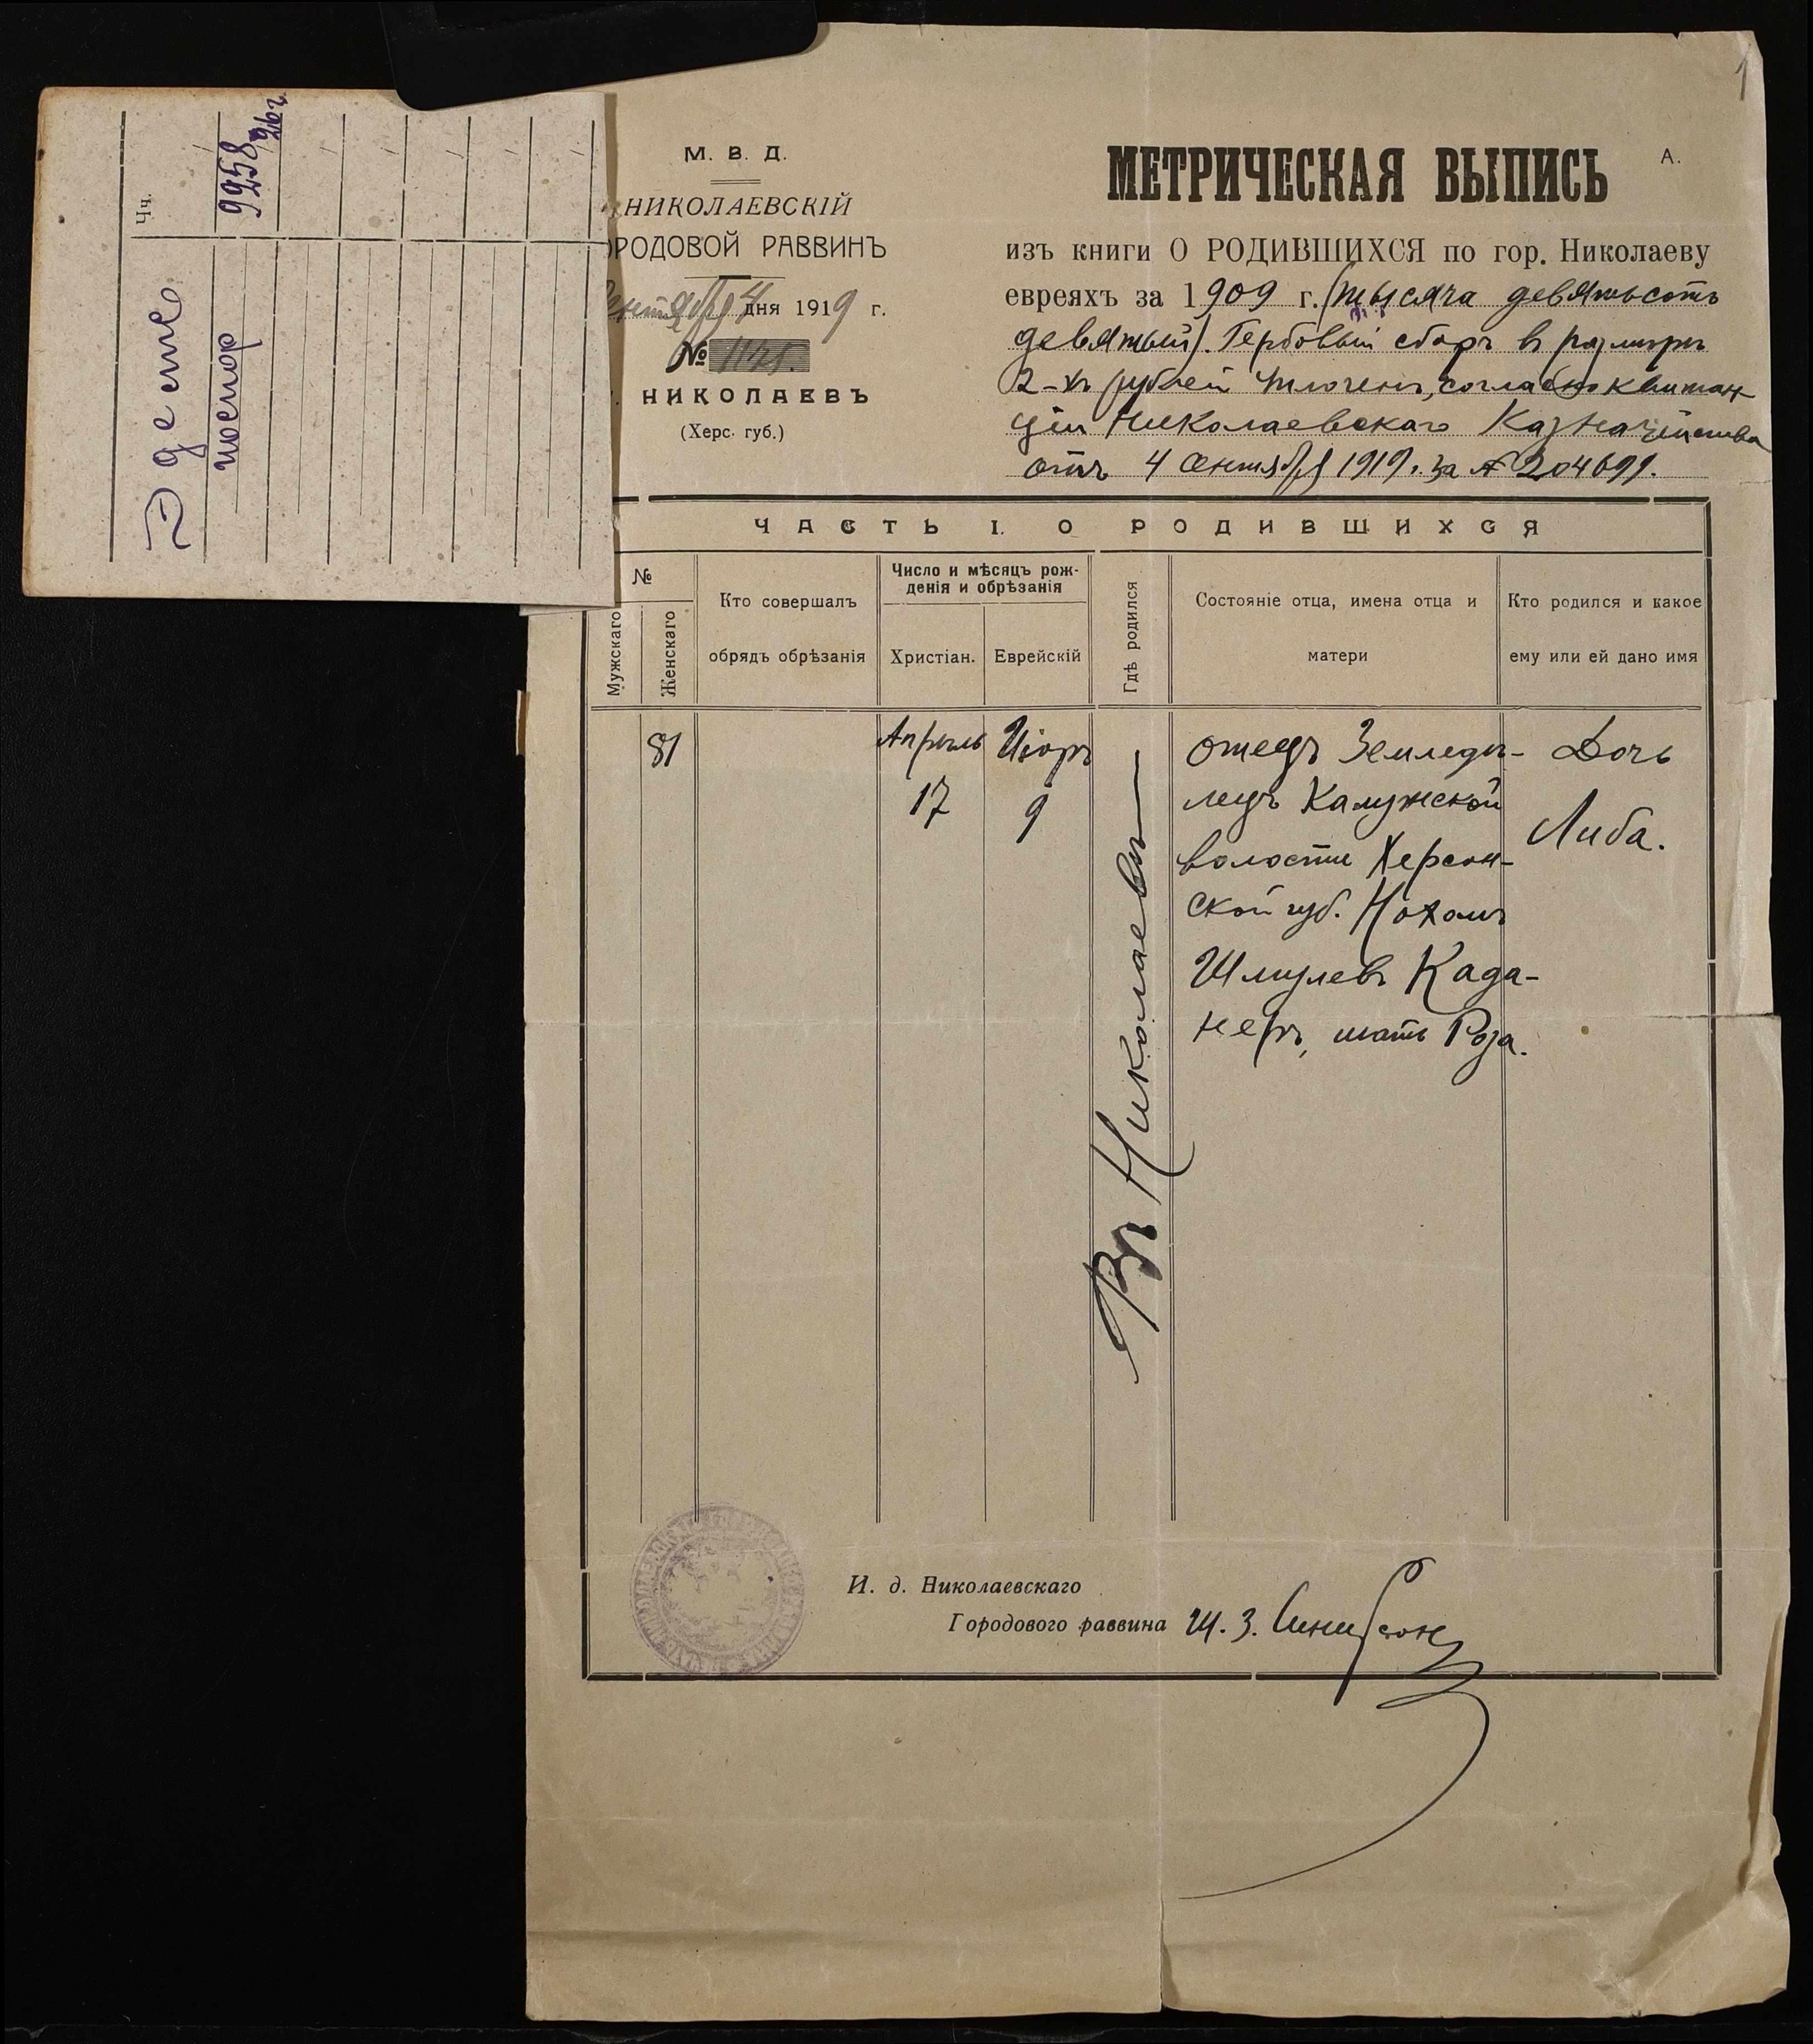 Чч.
Здесте
9258
иостор
1
М. В. Д.
НИКОЛАЕВСКІЙ
ОРОДОВОЙ РАВВИНЪ
дня 1919 г.
№ 1121.
НИКОЛАЕВЪ
(Херс. губ.)
МЕТРИЧЕСКАЯ ВЫПИСЬ
А.
изъ книги О РОДИВШИХСЯ по гор. Николаеву
евреяхъ за 1909 г. (тысяча девятьсотъ
девятый). Гербовый сборъ в размѣрѣ
2-хъ рублей уплоченъ, согласно квитан-
ціи Николаевскаго Казначейства
отъ 4 сентября 1919 г. за № 204699.
ЧАСТЬ I. О РОДИВШИХСЯ
№
Мужскаго
Женскаго
Кто совершалъ
обрядъ обрѣзанія
Число и мѣсяцъ рож-
денія и обрѣзанія
Христіан.
Еврейскій
Гдѣ родился
Состояніе отца, имена отца и
матери
Кто родился и какое
ему или ей дано имя
81
Апрѣль
17
Иіоръ
9
Въ Николаевѣ
отецъ Земледѣ-
лецъ Калужской
волости Херсон-
ской губ. Нохомъ
Шмулевъ Када-
неръ, мать Роза.
Дочь
Либа.
И. д. Николаевскаго
Городового раввина Ш. З.